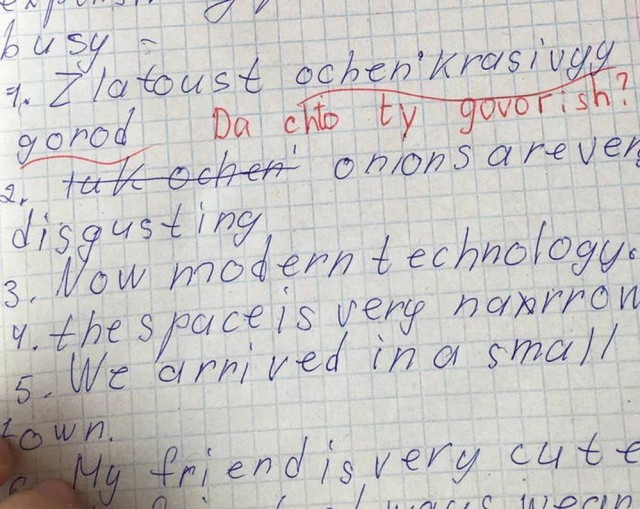 busy -
1. Zlatoust ochen' krasivyy
gorod Da chto ty govorish?
2. tak ochen' onions are ver
disgusting
3. Now modern technology.
4. the space is very narrow
5. We arrived in a small
town.
6 My friend is very cute